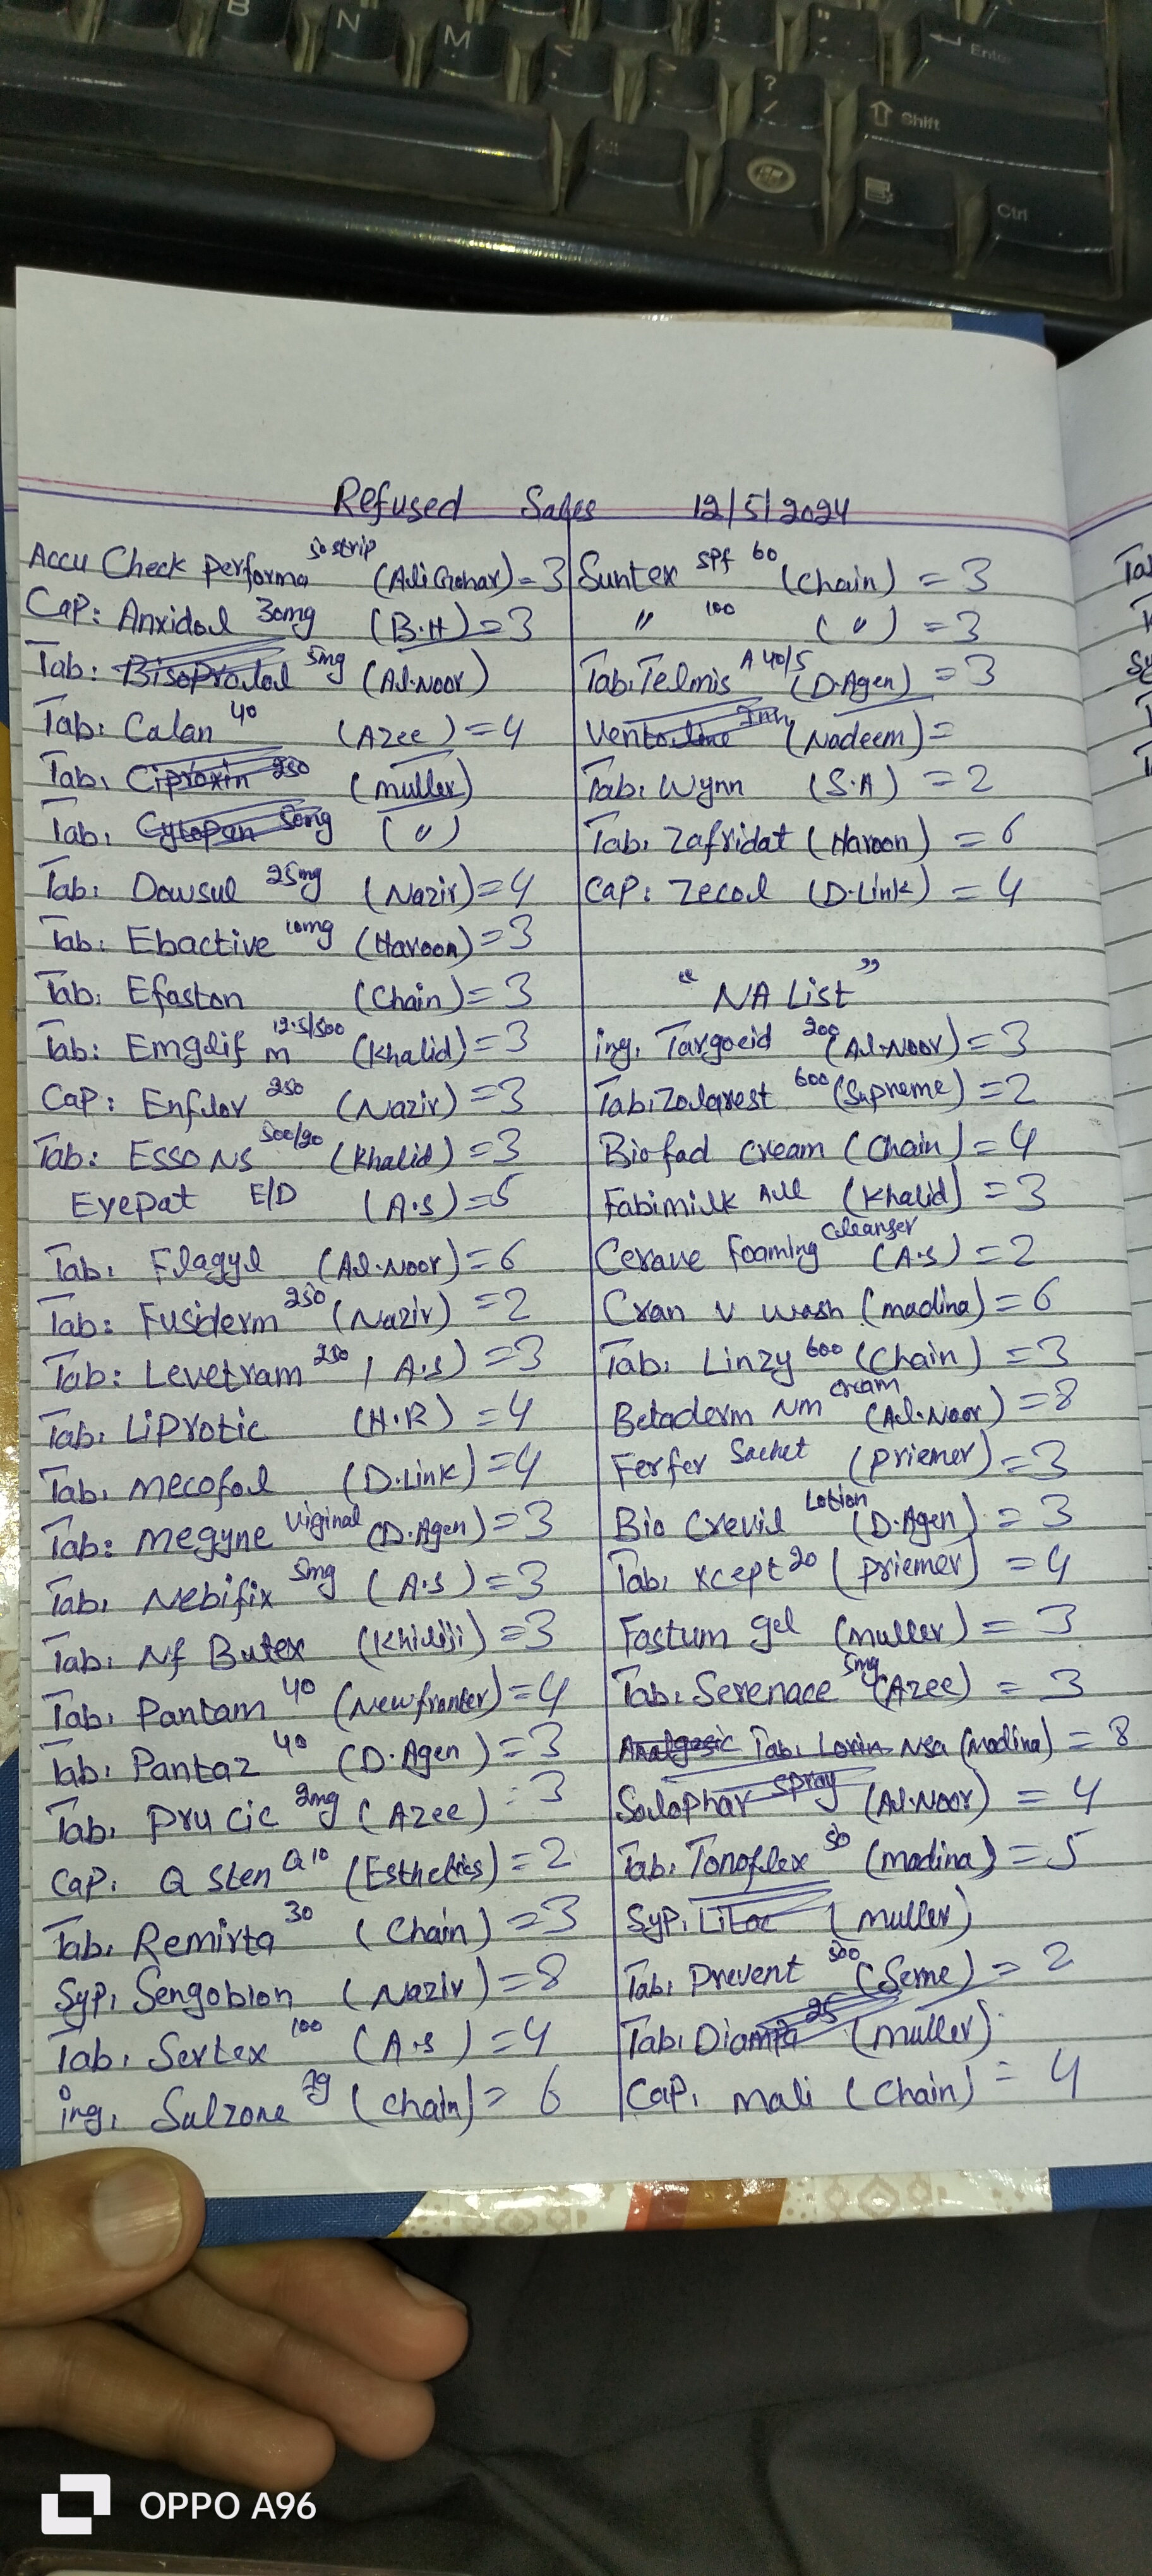 Refused Sales 12/5/2024
Accu Check Performa 50 strip (Ali Gohar) = 3
Cap: Anxidol 30mg (B.H) = 3
Tab: Bisoprolol 5mg (Al.Noor)
Tab. Calan 40 (Azee) = 4
Tab. Ciproxin 250 (muller)
Tab. Cytopan 50mg (")
Tab: Dowsul 25mg (Nazir) = 4
Tab: Ebactive 10mg (Haroon) = 3
Tab: Efaston (Chain) = 3
Tab: Emglif m 12.5/500 (Khalid) = 3
Cap: Enflor 250 (Nazir) = 3
Tab: Esso NS 500/20 (Khalid) = 3
Eyepat E/D (A.S) = 5
Tab. Flagyl (Al.Noor) = 6
Tab: Fusiderm 250 (Nazir) = 2
Tab: Levetram 250 (A.S) = 3
Tab. Liprotic (H.R) = 4
Tab. mecofol (D.Link) = 4
Tab: megyne Viginal (D.Agen) = 3
Tab. Nebifix 5mg (A.S) = 3
Tab. Nf Butex (Khiliji) = 3
Tab. Pantam 40 (New franter) = 4
Tab. Pantaz 40 (D.Agen) = 3
Tab. Pru cic 2mg (Azee) = 3
Cap. Q Sten Q10 (Esthetics) = 2
Tab. Remirta 30 (Chain) = 3
Syp. Sengobion (Nazir) = 8
Tab. Sertex 100 (A.S) = 4
inj. Sulzone 2g (Chain) = 6
Suntex SPF 60 (Chain) = 3
" 100 (") = 3
Tab. Telmis A 40/5 (D.Agen) = 3
Ventoline Inh (Nadeem) =
Tab. Wynn (S.A) = 2
Tab. Zafridat (Haroon) = 6
Cap: Zecol (D.Link) = 4
"NA List"
inj. Targocid 200 (Al.Noor) = 3
Tab. Zolarest 600 (Supreme) = 2
Biofad cream (Chain) = 4
Fabimilk All (Khalid) = 3
Cerave foaming Cleanser (A.S) = 2
Cran v wash (madina) = 6
Tab. Linzy 600 (Chain) = 3
Betaderm Nm cream (Al.Noor) = 8
Ferfer Sachet (Priemer) = 3
Bio Crevil Lotion (D.Agen) = 3
Tab. Xcept 20 (Priemer) = 4
Fastum gel (muller) = 3
Tab. Serenace 5mg (Azee) = 3
Analgesic Tab. Lorin Nsa (Madina) = 8
Salophar spray (Al.Noor) = 4
Tab. Tonoflex 50 (madina) = 5
Syp. Litac (muller)
Tab. Prevent 500 (Seme) = 2
Tab. Diampa 25 (muller)
Cap. mali (Chain) = 4
B N M
Enter
Shift
Alt
Ctrl
OPPO A96